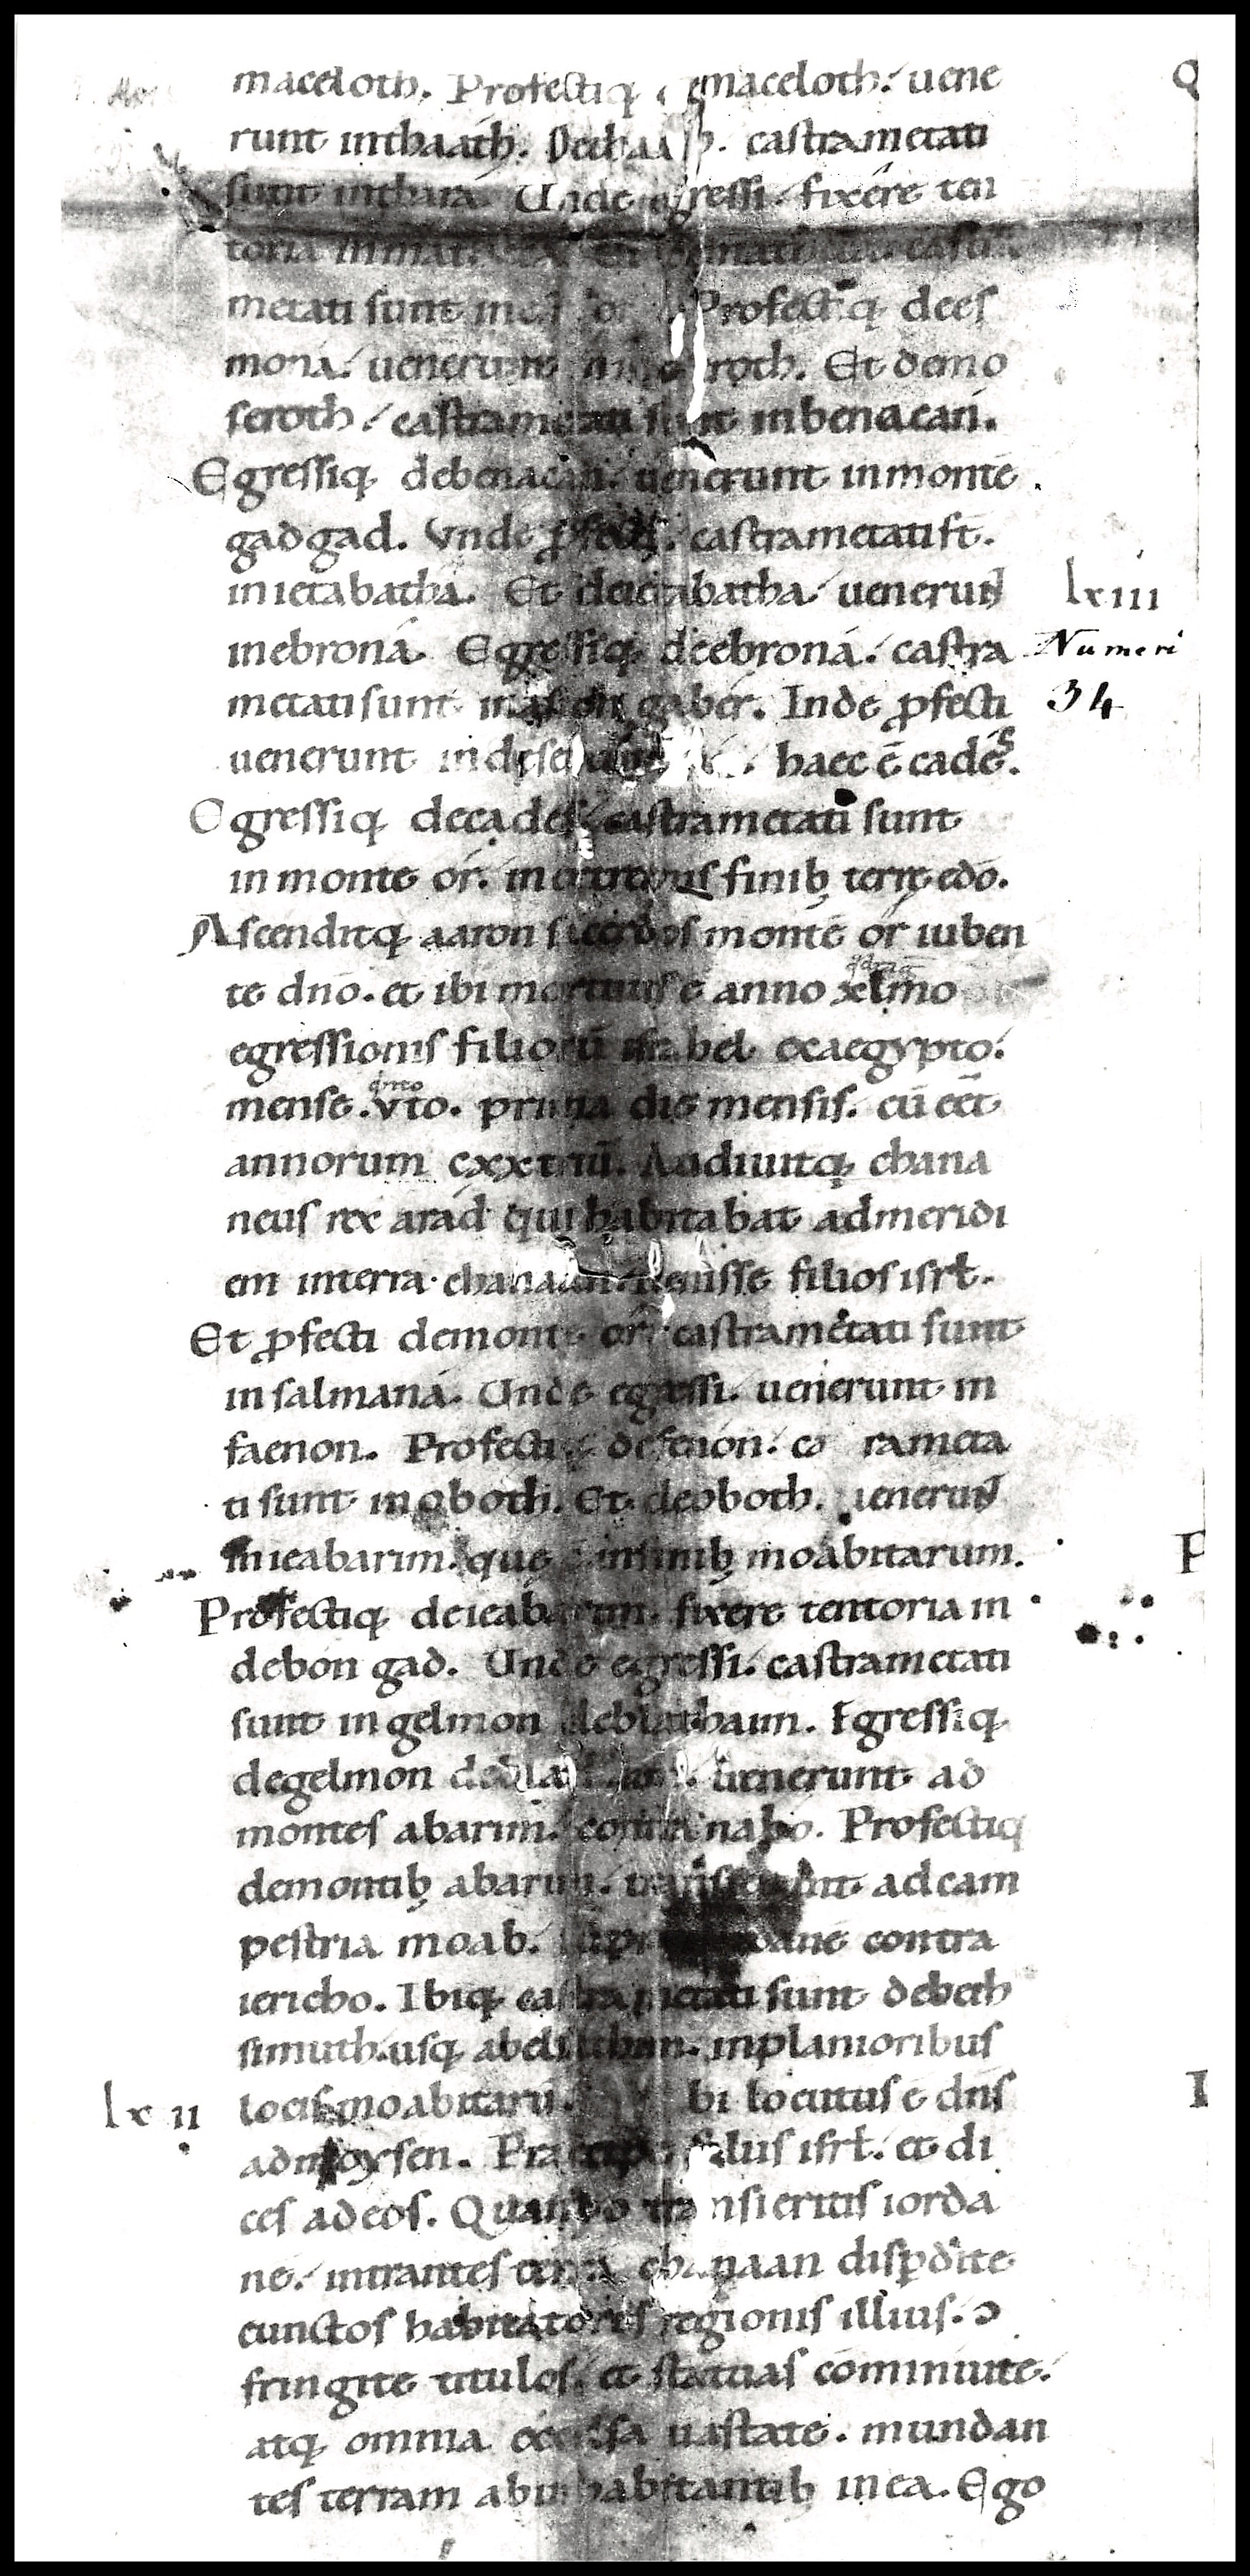 maceloth. Profectiq; maceloth. uene
runt inthaath. Dethaa castrametati
sunt inthara. Unde egressi. fixere ten
toria
metati sunt in Profectiq; dees
mona. uenerunt roth. Et demo
seroth. castrametati sunt inbenacan.
Egressiq; debenacan. uenerunt inmontē
gadgad. Vnde ꝓfecti. castrametati st̄.
inietabatha. Et deietabatha. uenerunt
lxiii
inebroná. Egressiq; deebroná. castra
Numeri
metati sunt gaber. Inde ꝓfecti
34
uenerunt indeser haec ē cades.
Egressiq; decades. castrametati sunt
inmonte ór. in extremis finib; terrę edō.
Ascenditq; aaron sacerdos montē ór iuben
te dnō. et ibi mortuus ē anno xlmo
egressionis filiorū israhel exaegypto.
mense .vto. prima die mensis. cū eēt
annorum cxxtriū. Audiuitq; chana
neus rex arad qui habitabat admeridi
em interra chanaan. uenisse filios isrł.
Et ꝓfecti demonte ór. castrametati sunt
insalmana. Unde egressi. uenerunt in
faenon. Profecti defenón. ca rameta
ti sunt inoboth. Et deoboth. uenerunt
inieabarim. quę infinib; moabitarum.
Profectiq; deieabarim. fixere tentoria in
debón gad. Unde egressi. castrametati
sunt in gelmon deblathaim. Egressiq;
degelmon uenerunt ad
montes abarim. contra nabo. Profectiq;
demontib; abarim. transierunt adcam
pestria moab. contra
iericho. Ibiq; castrametati sunt debeth
simuth. usq; abelsathim. inplanioribus
lxii locis moabitarū. bi locutus ē dns̄
admoysen. Praecipe filius isrł. et di
ces adeos. Quando transieritis iorda
nē. intrantes terrā chanaan disꝑdite
cunctos habitatores regionis illius. ↄ
fringite titulos. et statuas cōminuite.
atq; omnia excelsa uastate. mundan
tes terram ab habitantib; inea. Ego